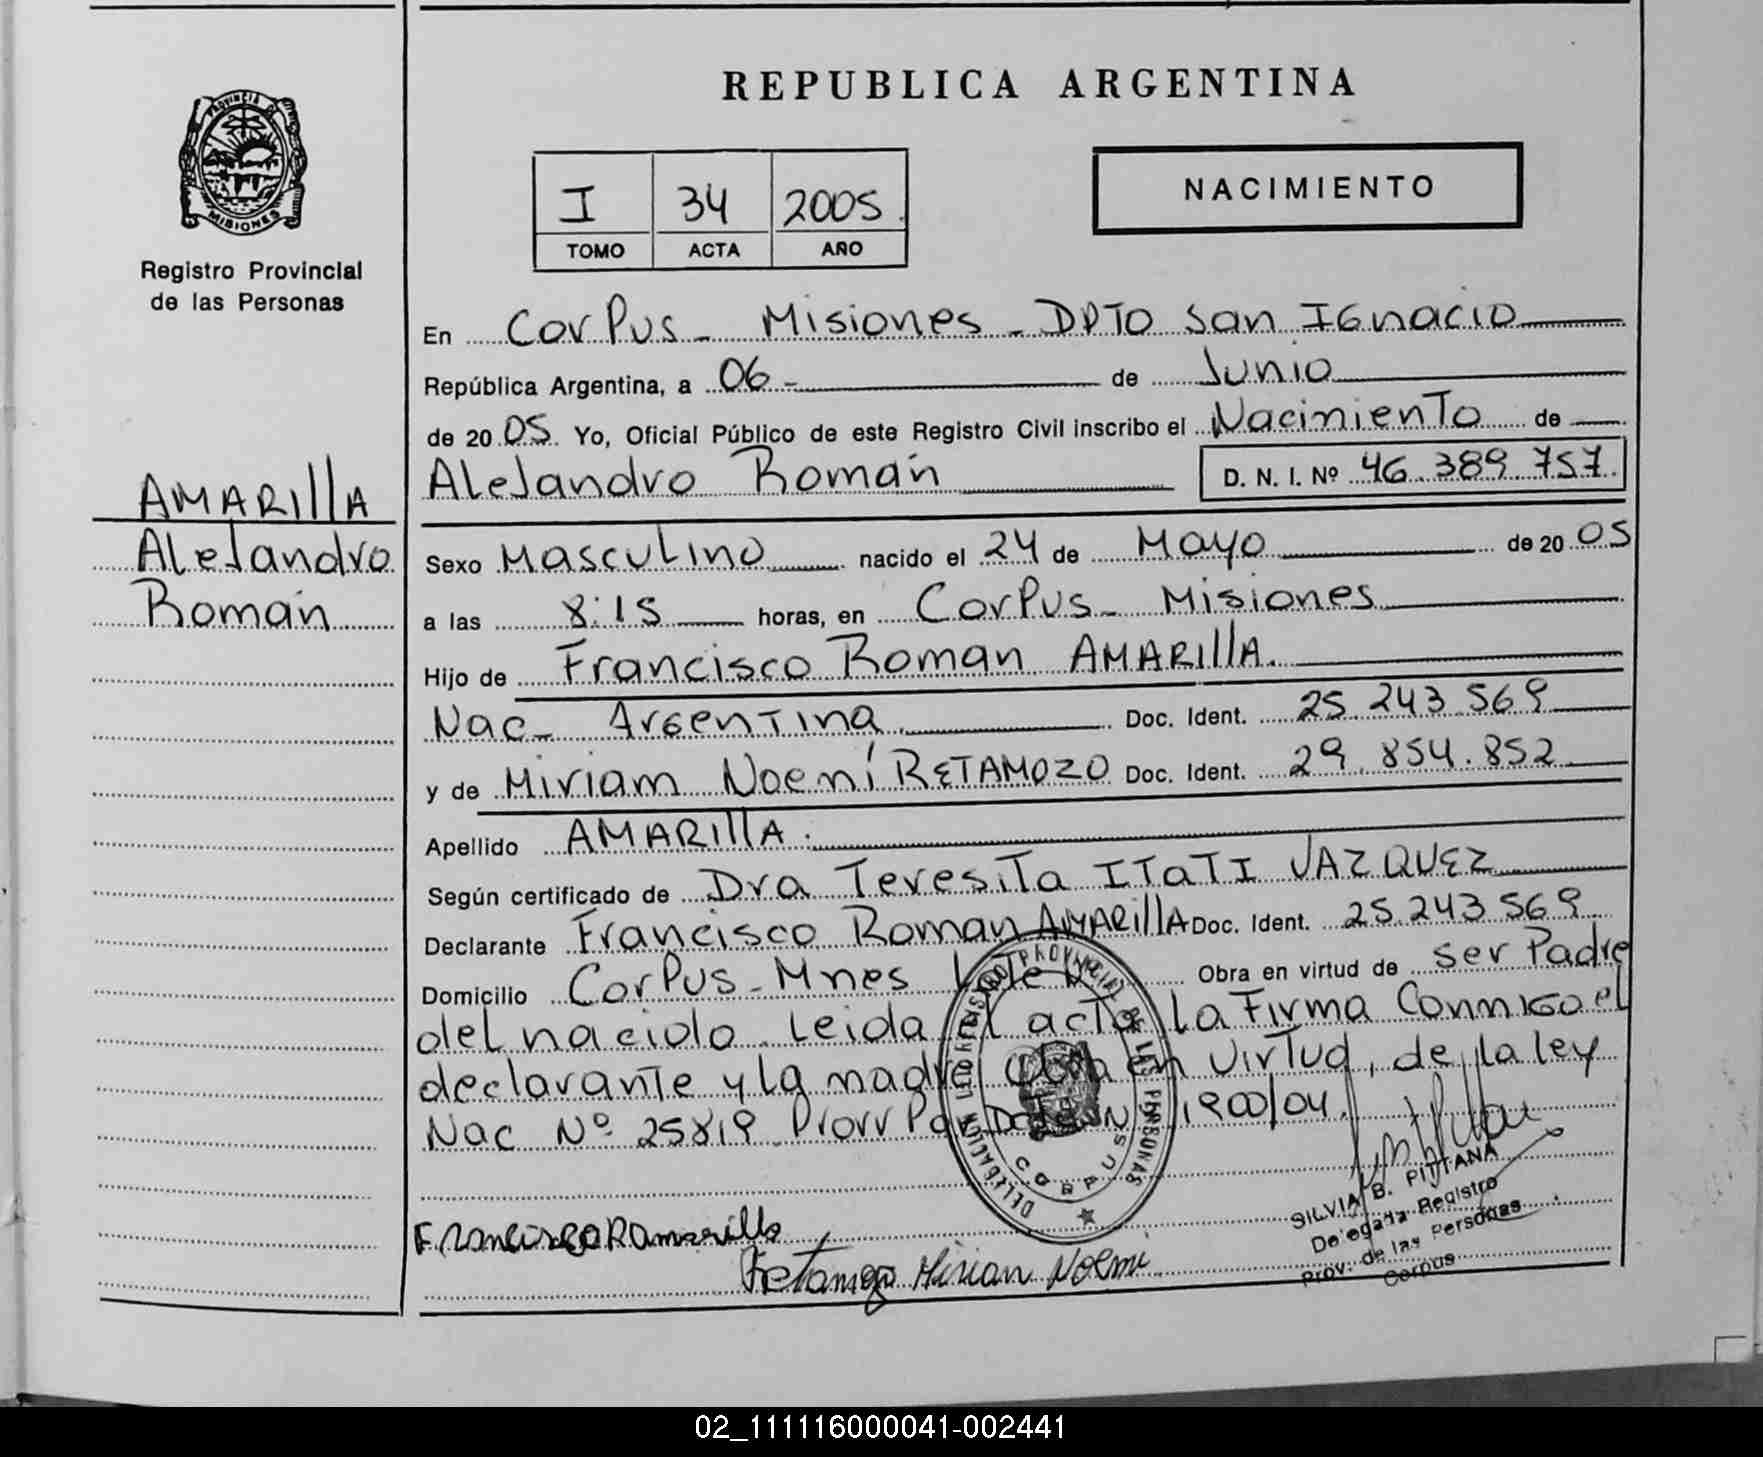 REPUBLICA ARGENTINA
PROVINCIA DE
MISIONES
Registro Provincial
de las Personas
I 34 2005
TOMO ACTA AÑO
NACIMIENTO
En Corpus - Misiones - DPTO San Ignacio
República Argentina, a 06 - de Junio
de 20 05 Yo, Oficial Público de este Registro Civil inscribo el Nacimiento de
Alejandro Román D. N. I. Nº 46.389.757
AMARIllA
Alejandro
Román
Sexo Masculino nacido el 24 de Mayo de 20 05
a las 8:15 horas, en Corpus - Misiones
Hijo de Francisco Roman AMARIllA.
Nac - Argentina Doc. Ident. 25.243.569
y de Miriam Noemí RETAMOZO Doc. Ident. 29.854.852
Apellido AMARIllA.
Según certificado de Dra Teresita ITATI VAZQUEZ
Declarante Francisco Roman AMARIllA Doc. Ident. 25.243.569
Domicilio Corpus - Mnes Obra en virtud de ser Padre
del nacido. Leida el acta la Firma Conmigo el
declarante y la madre en virtud, de la ley
Nac Nº 25819 1900/04.
DELEGACION REGISTRO PROVINCIAL DE LAS PERSONAS
CORPUS
SILVIA B. PITTANA
Delegada Registro
Prov. de las Personas
Corpus
Francisco R amarilla
Retamozo Mirian Noemi
02_111116000041-002441